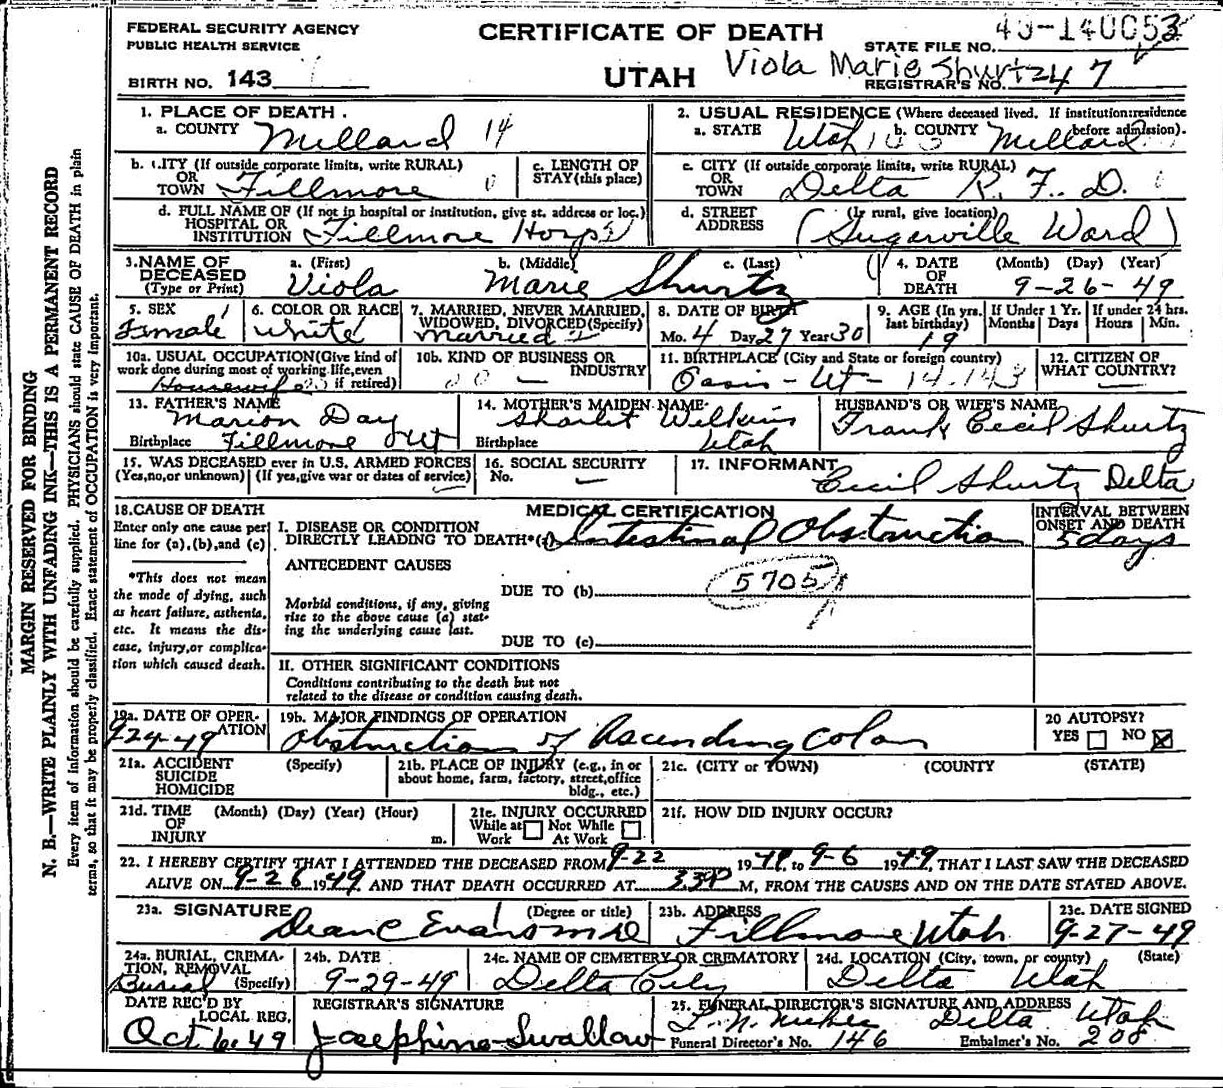 MARGIN RESERVED FOR BINDING
N. B.—WRITE PLAINLY WITH UNFADING INK—THIS IS A PERMANENT RECORD
Every item of information should be carefully supplied. PHYSICIANS should state CAUSE OF DEATH in plain
terms, so that it may be properly classified. Exact statement of OCCUPATION is very important.
FEDERAL SECURITY AGENCY
PUBLIC HEALTH SERVICE
BIRTH NO. 143
CERTIFICATE OF DEATH
UTAH
STATE FILE NO. 49-140053
Viola Marie Shurtz
REGISTRAR'S NO. 47
1. PLACE OF DEATH.
a. COUNTY Millard 14
b. CITY (If outside corporate limits, write RURAL)
OR
TOWN Fillmore 0
c. LENGTH OF
STAY (this place)
d. FULL NAME OF (If not in hospital or institution, give st. address or loc.)
HOSPITAL OR
INSTITUTION Fillmore Hosp
2. USUAL RESIDENCE (Where deceased lived. If institution: residence
before admission).
a. STATE Utah b. COUNTY Millard
c. CITY (If outside corporate limits, write RURAL)
OR
TOWN Delta R. F. D.
d. STREET (Is rural, give location)
ADDRESS (Sugarville Ward)
3. NAME OF
DECEASED
(Type or Print)
a. (First) b. (Middle) c. (Last)
Viola Marie Shurtz
4. DATE
OF
DEATH
(Month) (Day) (Year)
9-26-49
5. SEX
Female
6. COLOR OR RACE
White
7. MARRIED, NEVER MARRIED,
WIDOWED, DIVORCED (Specify)
Married
8. DATE OF BIRTH
Mo. 4 Day 27 Year 30
9. AGE (In yrs.
last birthday)
19
If Under 1 Yr.
Months Days
If under 24 hrs.
Hours Min.
10a. USUAL OCCUPATION (Give kind of
work done during most of working life, even
if retired)
Housewife
10b. KIND OF BUSINESS OR
INDUSTRY
—
11. BIRTHPLACE (City and State or foreign country)
Oasis - Ut - 14.143
12. CITIZEN OF
WHAT COUNTRY?
—
13. FATHER'S NAME
Marion Day
Birthplace Fillmore Ut
14. MOTHER'S MAIDEN NAME
Wilkins
Birthplace Utah
HUSBAND'S OR WIFE'S NAME
Frank Cecil Shurtz
15. WAS DECEASED ever in U.S. ARMED FORCES
(Yes, no, or unknown) (If yes, give war or dates of service)
16. SOCIAL SECURITY
No. —
17. INFORMANT
Cecil Shurtz Delta
18. CAUSE OF DEATH
Enter only one cause per
line for (a), (b), and (c)
*This does not mean
the mode of dying, such
as heart failure, asthenia,
etc. It means the dis-
ease, injury, or complica-
tion which caused death.
MEDICAL CERTIFICATION
I. DISEASE OR CONDITION
DIRECTLY LEADING TO DEATH*(a) Intestinal Obstruction
INTERVAL BETWEEN
ONSET AND DEATH
5 days
ANTECEDENT CAUSES
DUE TO (b) 5705
Morbid conditions, if any, giving
rise to the above cause (a) stat-
ing the underlying cause last.
DUE TO (c)
II. OTHER SIGNIFICANT CONDITIONS
Conditions contributing to the death but not
related to the disease or condition causing death.
19a. DATE OF OPER-
ATION
9-24-49
19b. MAJOR FINDINGS OF OPERATION
Obstruction of Ascending Colon
20 AUTOPSY?
YES ☐ NO ☒
21a. ACCIDENT (Specify)
SUICIDE
HOMICIDE
21b. PLACE OF INJURY (e.g., in or
about home, farm, factory, street, office
bldg., etc.)
21c. (CITY or TOWN) (COUNTY) (STATE)
21d. TIME (Month) (Day) (Year) (Hour)
OF
INJURY m.
21e. INJURY OCCURRED
While at ☐ Not While ☐
Work At Work
21f. HOW DID INJURY OCCUR?
22. I HEREBY CERTIFY THAT I ATTENDED THE DECEASED FROM 9-22 1949, to 9-6 1949, THAT I LAST SAW THE DECEASED
ALIVE ON 9-26 1949 AND THAT DEATH OCCURRED AT 3:30P M, FROM THE CAUSES AND ON THE DATE STATED ABOVE.
23a. SIGNATURE (Degree or title)
Dean C Evans MD
23b. ADDRESS
Fillmore Utah
23c. DATE SIGNED
9-27-49
24a. BURIAL, CREMA-
TION, REMOVAL
(Specify)
Burial
24b. DATE
9-29-49
24c. NAME OF CEMETERY OR CREMATORY
Delta City
24d. LOCATION (City, town, or county) (State)
Delta Utah
DATE REC'D BY
LOCAL REG.
Oct 6. 49
REGISTRAR'S SIGNATURE
Josephine Swallow
25. FUNERAL DIRECTOR'S SIGNATURE AND ADDRESS
Delta Utah
Funeral Director's No. 146 Embalmer's No. 208